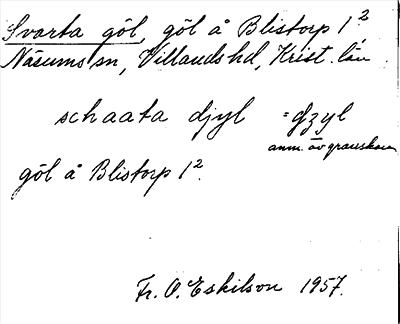 Svarta göl, göl å Blistorp 1²,
Näsums sn, Villands hd, Krist. län.
schaata djyl = gzyl
anm. av granskaren
göl å Blistorp 1².
Fr. O. Eskilson 1957.